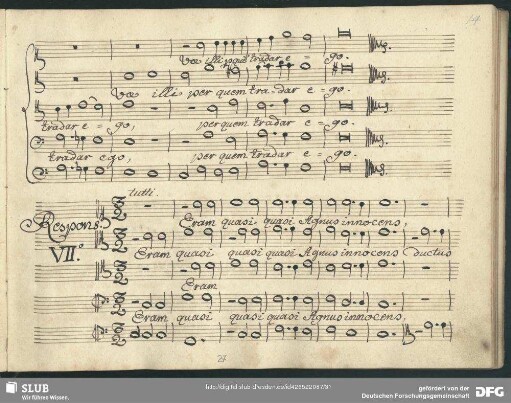 14
Vae illi per quem tradar e = go.
Vae illi per quem tra=dar e = go.
tradar e = go, per quem tradar e = go.
tradar ego, per quem tradar e = go.
tutti.
Respons:
VII.
Eram quasi quasi Agnus innocens,
Eram quasi quasi quasi Agnus innocens Ductus
Eram
Eram quasi quasi quasi Agnus innocens,
SLUB
Wir führen Wissen.
gefördert von der
Deutschen Forschungsgemeinschaft
DFG